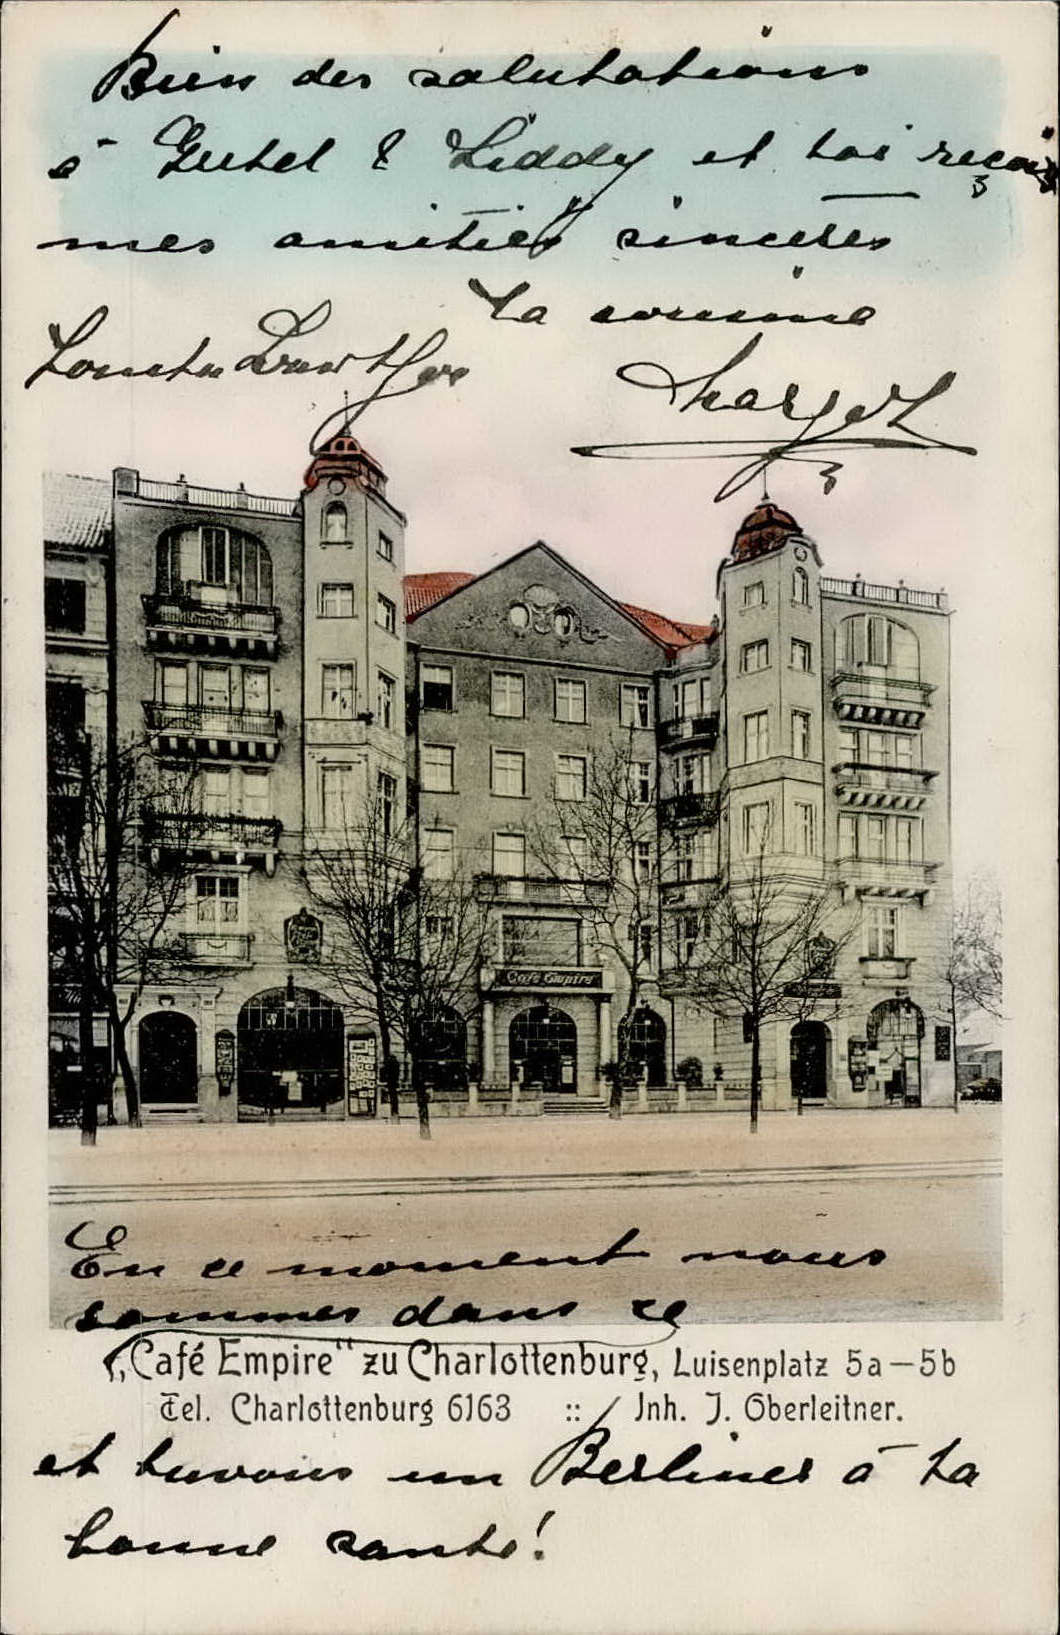 Bien des salutations
à Gretel & Liddy et toi reçois
mes amitiés sincères
Ta cousine
Margot
Café Empire
En ce moment nous
sommes dans ce
„Café Empire“ zu Charlottenburg, Luisenplatz 5a—5b
Tel. Charlottenburg 6163 :: Inh. J. Oberleitner.
et buvons un Berliner à ta
bonne santé!